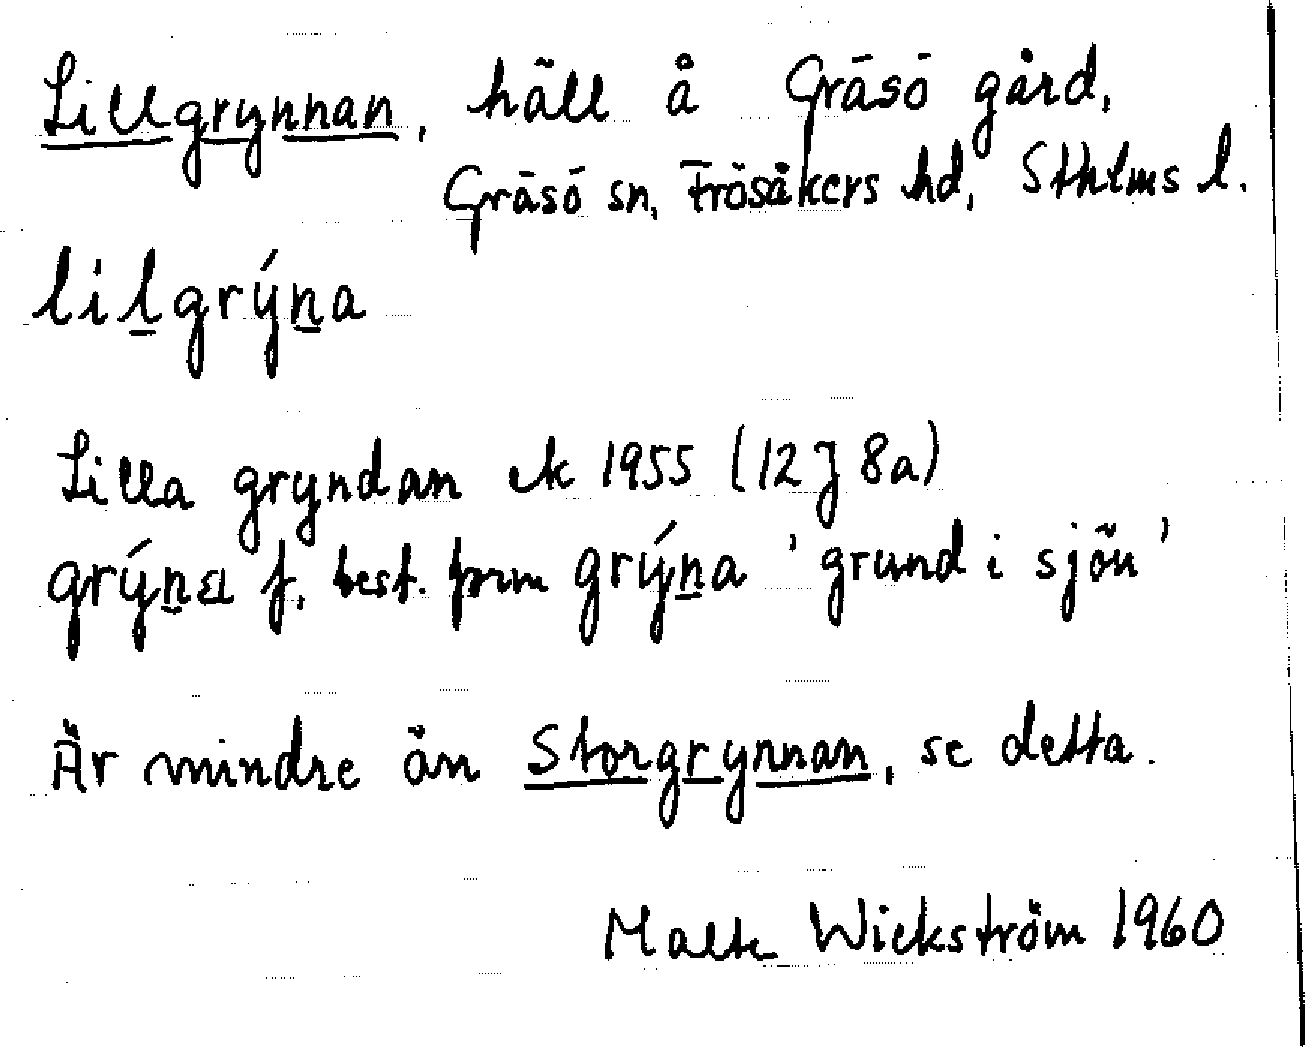 Lillgrynnan, häll å Gräsö gård,
Gräsö sn, Frösåkers hd, Sthlms l.
lil̲grýn̲a
Lilla gryndan ek 1955 (12 J 8a)
grýn̲a f, best. form grýn̲a 'grund i sjön'
Är mindre än Storgrynnan, se detta.
Malte Wickström 1960